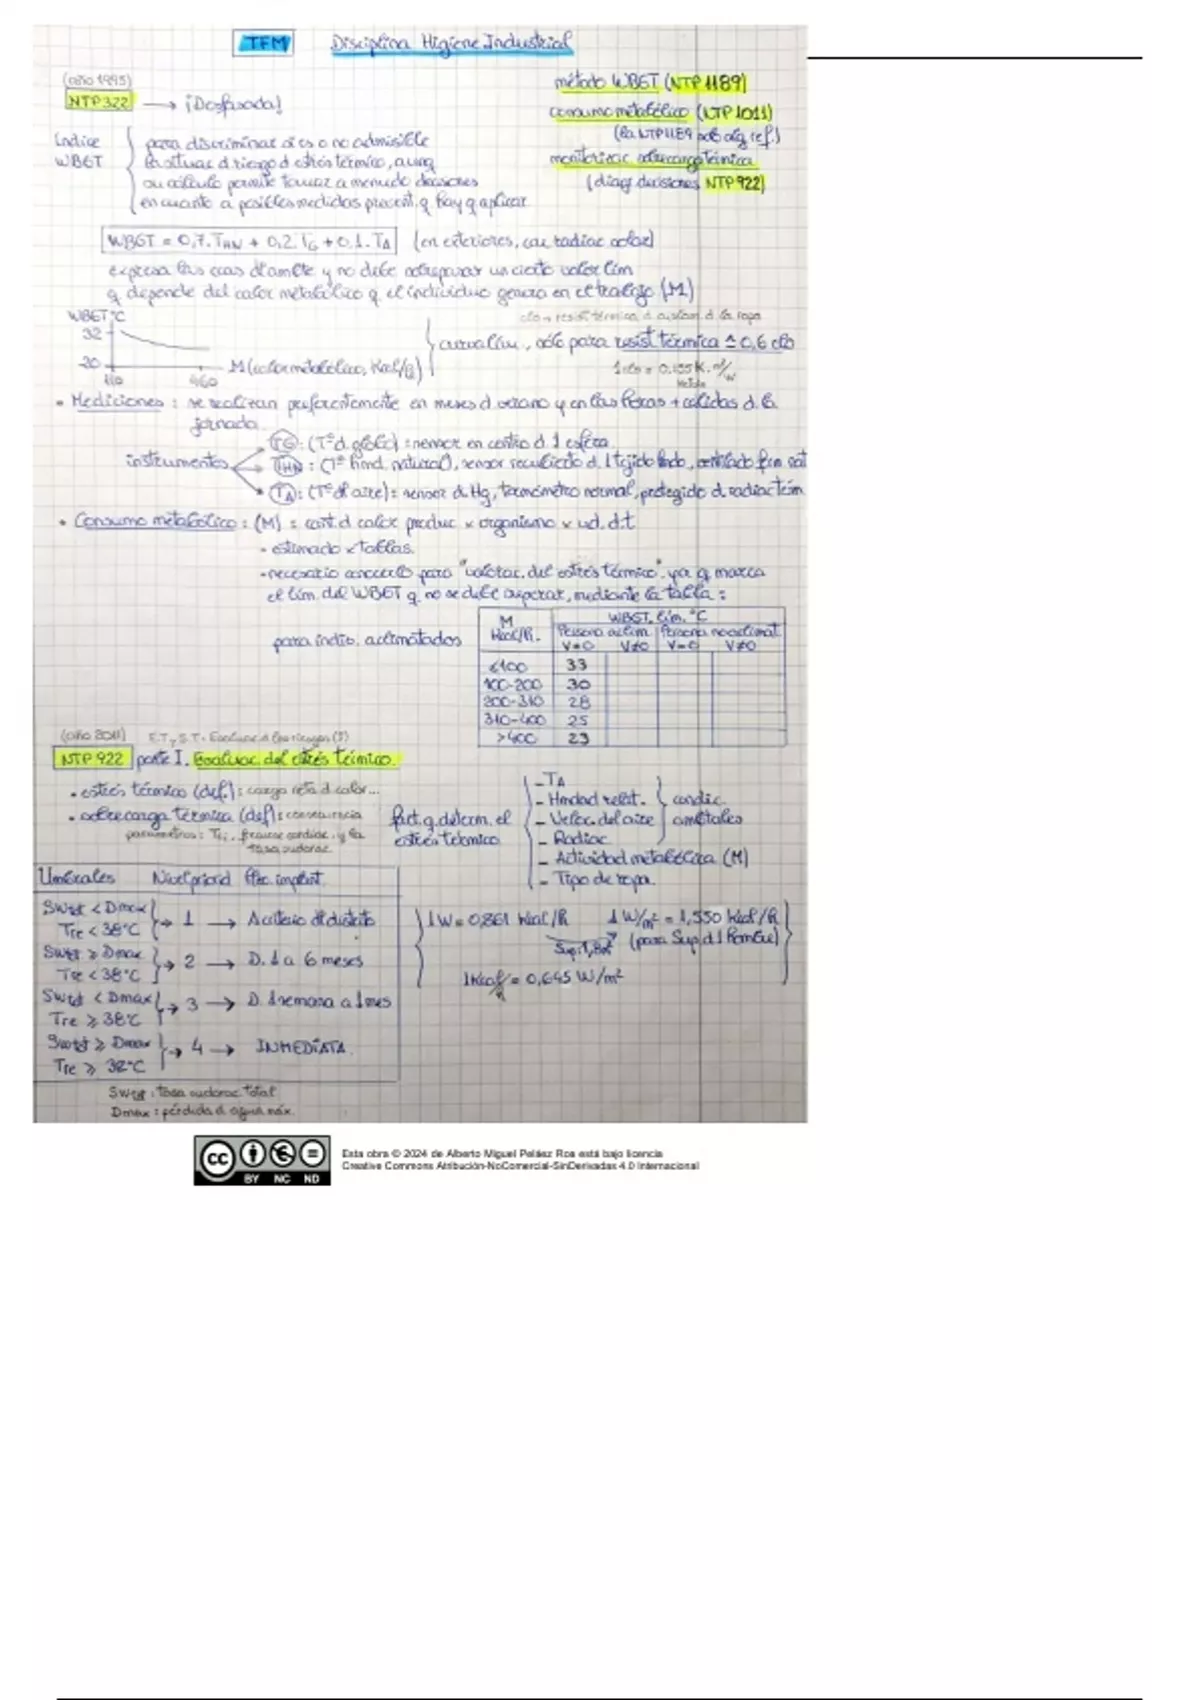 TFM Disciplina Higiene Industrial
(año 1995)
NTP 322 → ¡Desfasada!
método WBGT (NTP 1189)
consumo metabólico (NTP 1011)
(la NTP 1189 ref.)
monitorizac. sobrecarga térmica
(diagr. decisiones NTP 922)
Índice WBGT
para discriminar si es o no admisible
la situac. d riesgo d estrés térmico, aunq
su cálculo permite tomar a menudo decisiones
en cuanto a posibles medidas prevent. q hay q aplicar
WBGT = 0,7. THN + 0,2. TG + 0,1. TA (en exteriores, con radiac solar)
expresa las d'amb'te y no debe sobrepasar un cierto valor lím
q depende del calor metabólico q el individuo genera en el trabajo (M)
WBGT °C
32
20
110 460
M (calor metabólico, Kcal/h)
clo → resist. térmica d aislam. d la ropa
curva lím., sólo para resist térmica ≙ 0,6 clo
1 clo = 0.155 K. m²/W
Kelvin
• Mediciones : se realizan preferentemente en meses d. verano y en las horas + cálidas d. la
jornada.
instrumentos
TG : (Tª d. globo) : sensor en centro d. 1 esfera
THN : (Tª húmd. natural), sensor recubierto d. 1 tejido
TA : (Tª d'l aire) : sensor d. Hg, termómetro normal, protegido d. radiac térm
• Consumo metabólico : (M) : cant. d calor produc x organismo x ud. d. t
- estimado x tablas.
- necesario conocerlo para "valorac. del estrés térmico". ya q marca
el lím. del WBGT q no se debe superar, mediante la tabla :
para indiv. aclimatados
M Kcal/h. WBGT. lím. °C
Persona aclim. Persona no aclimat.
V=0 V≠0 V=0 V≠0
≤100 33
100-200 30
200-310 28
310-400 25
>400 23
(año 2011) E.T y S.T. Evaluac. d los riesgos (I)
NTP 922 parte I. Evaluac. del estrés térmico.
• estrés térmico (def.) : carga neta d calor...
• sobrecarga térmica (def) : consecuencia
parámetros : Tre, frecuenc cardiac. y la
tasa sudorac.
fact. q determ. el
estrés térmico
- TA
- Humdad relat.
- Veloc. del aire
- Radiac
condic. amb'tales
- Actividad metabólica (M)
- Tipo de ropa.
Umbrales Nivel priorid Plzo. implant.
SWtot < Dmax
Tre < 38°C
→ 1 → A criterio d'l
SWtot ≥ Dmax
Tre < 38°C
→ 2 → D. 1 a 6 meses
SWtot < Dmax
Tre ≥ 38°C
→ 3 → D. 1 semana a 1 mes
SWtot ≥ Dmax
Tre ≥ 38°C
→ 4 → INMEDIATA
SWtot : tasa sudorac. total
Dmax : pérdida d. agua máx.
1 W = 0,861 Kcal/h 1 W/m² = 1,550 Kcal/h
Sup: 1,8 m² (para Sup. d 1 hombre)
1 Kcal/h = 0,645 W/m²
cc BY NC ND
Esta obra © 2024 de Alberto Miguel Peláez Roa está bajo licencia
Creative Commons Atribución-NoComercial-SinDerivadas 4.0 Internacional